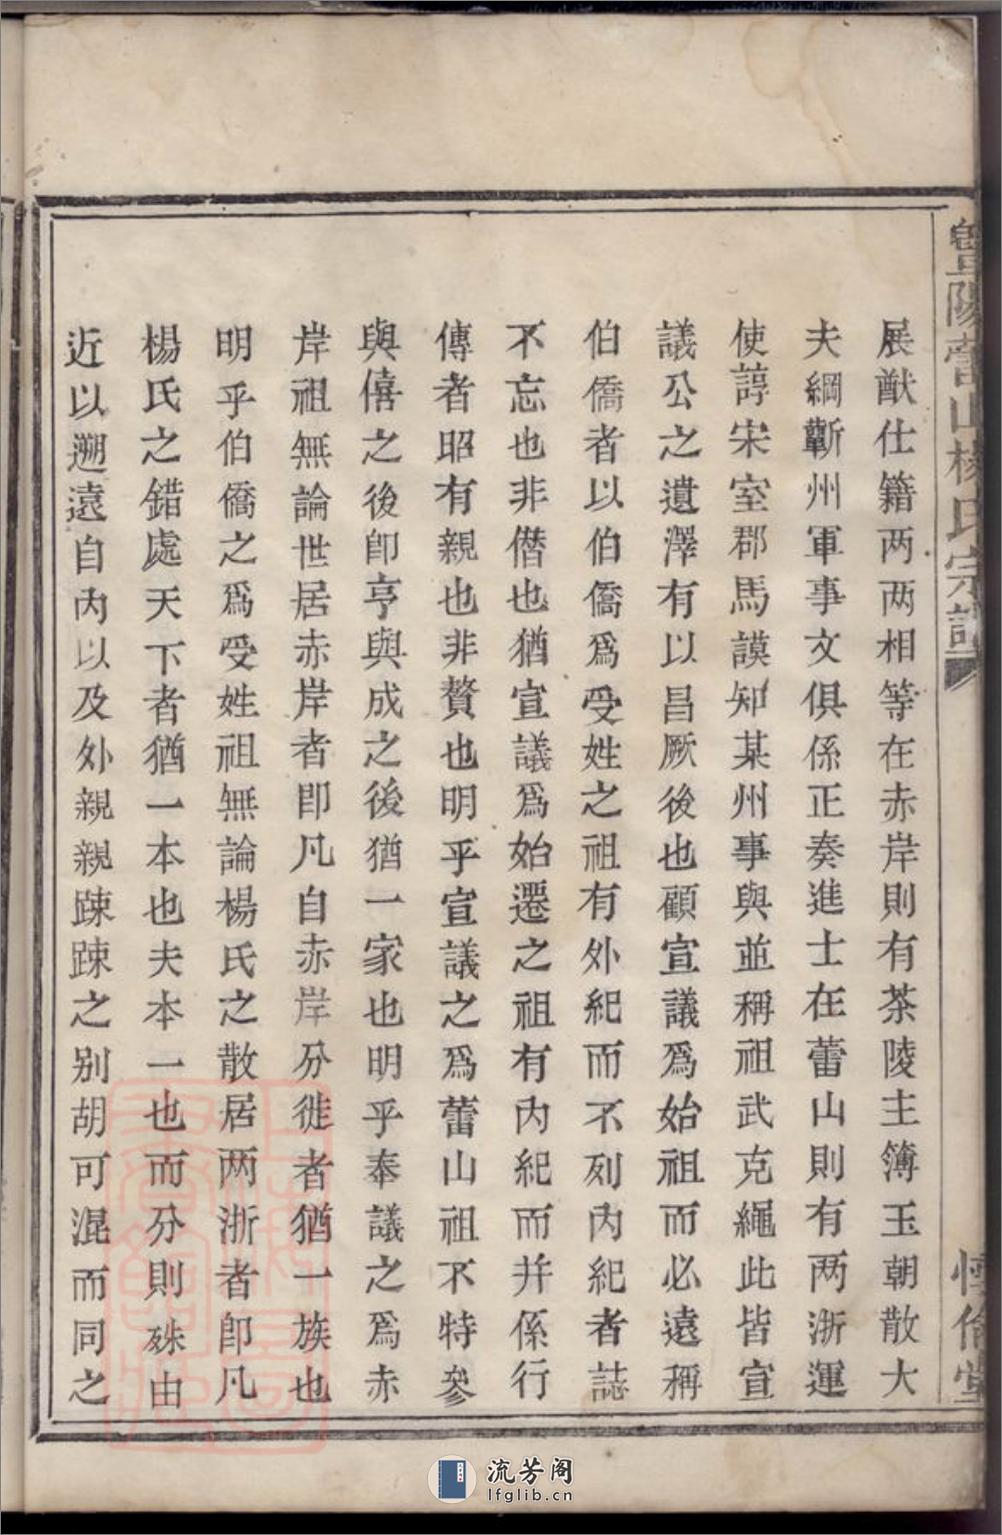 暨陽蕾山楊氏宗譜
惇倫堂
展猷仕籍两两相等在赤岸則有茶陵主簿玉朝散大
夫綱蘄州軍事文俱係正奏進士在蕾山則有两浙運
使諄宋室郡馬謨知某州事與並稱祖武克繩此皆宣
議公之遺澤有以昌厥後也顧宣議爲始祖而必遠稱
伯僑者以伯僑爲受姓之祖有外紀而不列內紀者誌
不忘也非僭也猶宣議爲始遷之祖有內紀而并係行
傳者昭有親也非贅也明乎宣議之爲蕾山祖不特參
與僖之後卽亨與成之後猶一家也明乎奉議之爲赤
岸祖無論世居赤岸者卽凡自赤岸分徙者猶一族也
明乎伯僑之爲受姓祖無論楊氏之散居两浙者卽凡
楊氏之錯處天下者猶一本也夫本一也而分則殊由
近以遡遠自內以及外親親踈踈之别胡可混而同之
流芳阁
lfglib.cn